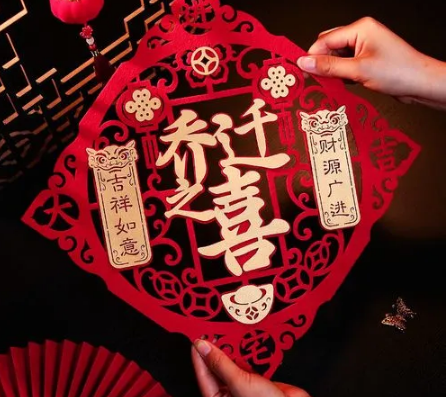 乔迁
之喜
吉祥如意
财源广进
大
宅